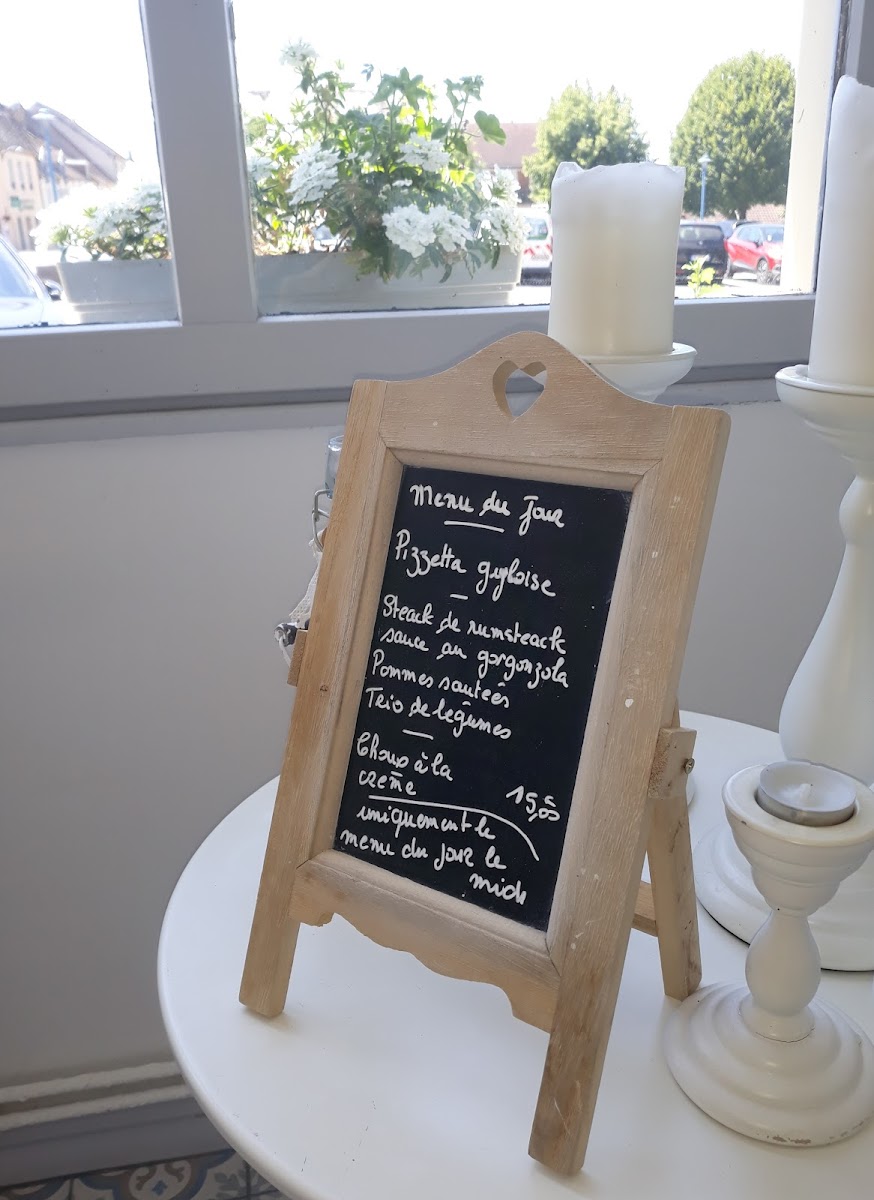 Menu du Jour
Pizzetta gyloise
Steack de rumsteack
sauce au gorgonzola
Pommes sautées
Trio de légumes
Choux à la
crème
15,00
uniquement le
menu du jour le
midi